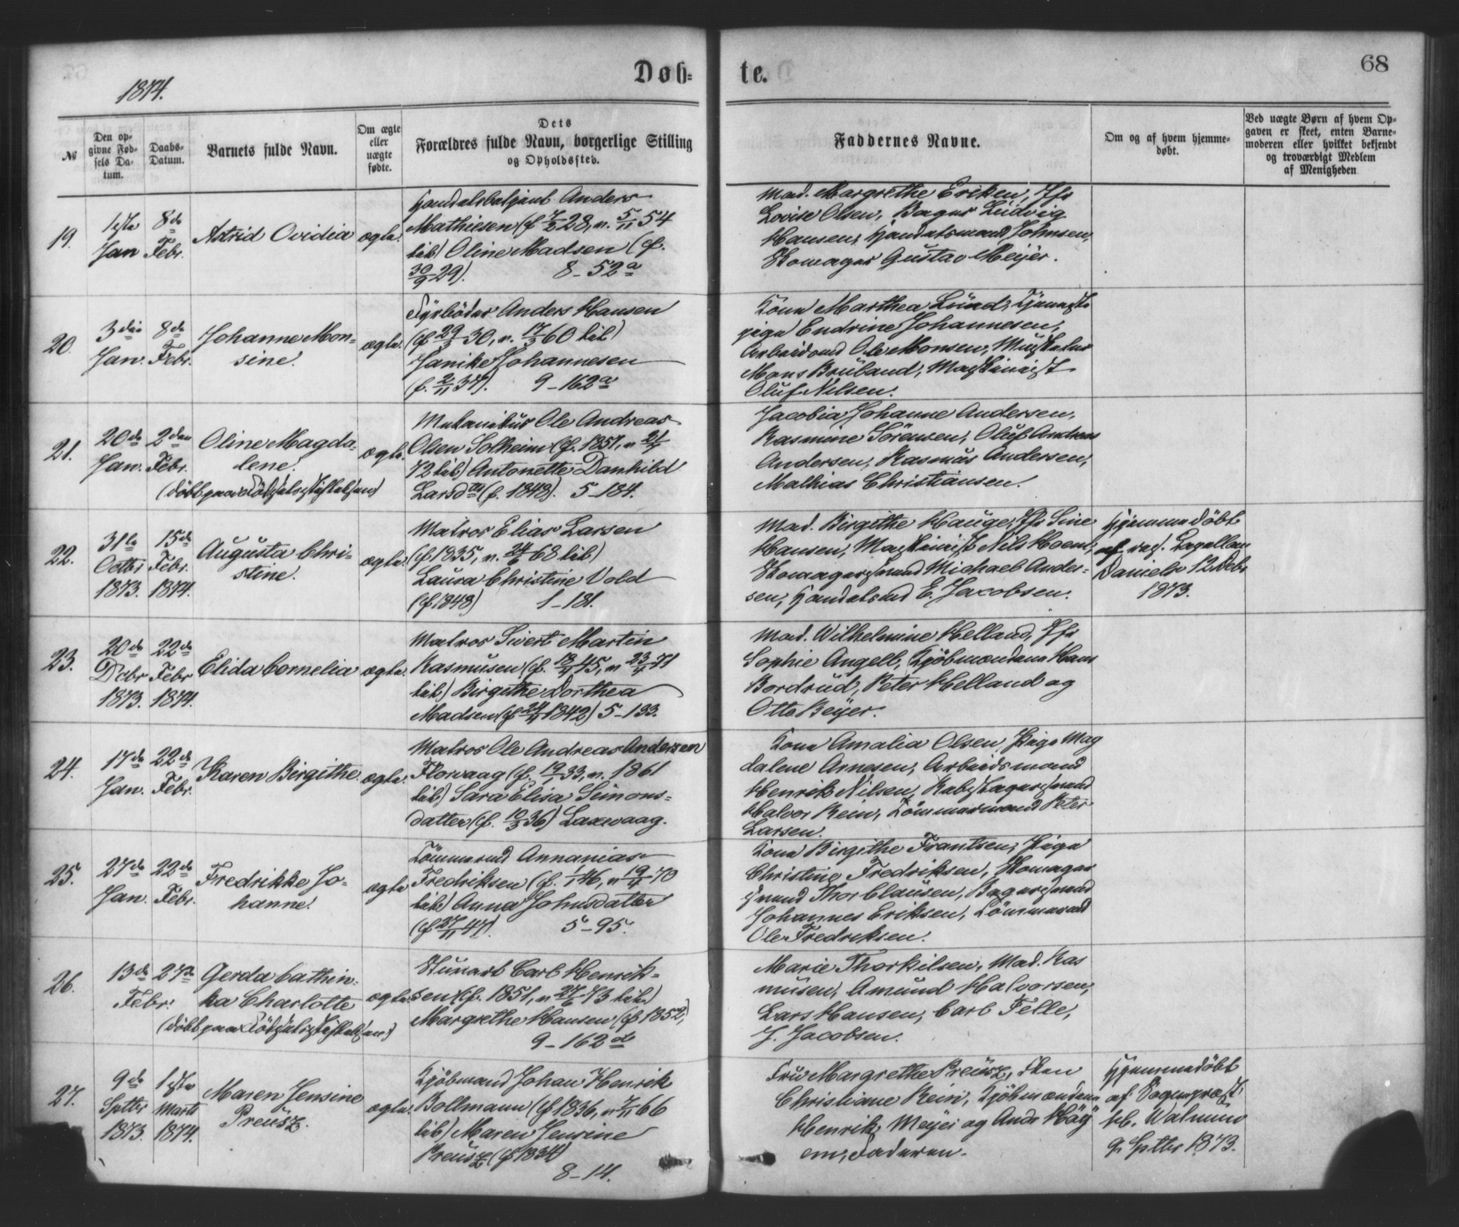 1874.
Døb=
te.
68
№
Den op-
givne Fød-
sels Da-
tum.
Daabs-
Datum.
Barnets fulde Navn.
Om ægte
eller
uægte
fødte.
Dets
Forældres fulde Navn, borgerlige Stilling
og Opholdssted.
Faddernes Navne.
Om og af hvem hjemme-
døbt.
Ved uægte Børn af hvem Op-
gaven er skeet, enten Barne-
moderen eller hvilket bekjendt
og troværdigt Medlem
af Menigheden
19.
1ste
Jan
8de
Febr.
Astrid Ovidia
ægte.
Handelsbetjent Anders
Mathiesen (f. 28, v. 5/11 54
kib) Oline Madsen (f.
30/9 29). 8–52a
Mad. Margrethe Eriksen, Jfr
Lovise Olsen, Bager Ludvig
Hansen, Handelsmand Johnsen,
Skomager Gustav Meijer.
20.
3die
Jan.
8de
Febr.
Johanne Mon-
sine.
ægte.
Fyrbøder Anders Hansen
(f. 30, v. 60 kib)
Janike Johannesen
(f. 2/11 37). 9–162
Kone Marthea Lund, Tjeneste
pige Endrine Johannesen,
Arbeidsmd Ole Monsen,
Mons Bruland, Maskinist
Oluf Nilsen.
21.
20de
Jan.
2den
Febr.
Oline Magda-
lene.
(døbt paa Fødselsstiftelsen)
ægte.
Mekanikus Ole Andreas
Olsen Solheim (f. 1851, v.
72 kib) Antonette Damhild
Larsdtr (f. 1848). 5–184.
Jacobia Johanne Andersen,
Rasmine Sørensen, Oluf Andreas
Andersen, Rasmus Andersen,
Mathias Christiansen.
22.
31te
Octbr
1873.
15de
Febr.
1874.
Augusta Chri-
stine.
ægte.
Matros Elias Larsen
(f. 1835, v. 68 kib)
Laura Christine Vold
(f. 1848) 1–181.
Mad. Birgithe Hauge, Jfr Sine
Hansen, Maskinist Nils Hoem,
Skomagersvend Michael Ander-
sen, Handelsmd E. Jacobsen.
Hjemmedøbt
af res. Capellan
Daniels 12 Decbr
1873.
23.
20de
Dcbr
1873.
22de
Febr
1874.
Elida Cornelia
ægte.
Matros Sivert Martin
Rasmusen (f. 45, v. 23 71
kib) Birgithe Dorthea
Madsen (f. 1842) 5–133.
Mad. Wilhelmine Helland, Jfr
Sophie Angell, Kjøbmændene Hans
Bordrud, Peter Helland og
Otto Beijer.
24.
17de
Jan.
22de
Febr.
Karen Birgithe
ægte.
Matros Ole Andreas Andersen
Florvaag (f. 33, v. 1861
kib) Sara Elisa Simons-
datter (f. 10/3 36) Laxevaag.
Kone Amalia Olsen, Pige Mag
dalene Arnesen, Arbeidsmand
Henrik Nilsen,
Halvor Rein, Tømmermand Peter
Larsen.
25.
27de
Jan.
22de
Febr.
Fredrikke Jo-
hanne
ægte
Tømmermd Annanias
Fredriksen (f. 46, v. 19 70
kib) Anna Johnsdatter
(f. 27/11 47). 5–95.
Kone Birgithe Frantsen, Pige
Christine Fredriksen, Skomager
svend Thor Clausen, Bagersvend
Johannes Eriksen, Tømmermd
Ole Fredriksen.
26.
13de
Febr.
27de
Gerda Cathin-
ka Charlotte
(døbt paa Fødselsstiftelsen)
ægte
Stuart Carl Henrik-
sen (f. 1851, v. 73 kib)
Margrethe Hansen (f. 1852)
9–162
Marie Thorkilsen, Mad. Ras
musen, Amund Halvorsen,
Lars Hansen, Carl Felle,
J. Jacobsen.
27.
9de
Sptbr
1873
1ste
Marts
1874.
Maren Jensine
Preusz.
ægte
Kjøbmand Johan Henrik
Bollmann (f. 1836, v. 66
kib) Maren Jensine
Preusz (f. 1834)
8–14.
Fru Margrethe Preusz, Frkn
Christiane Rein, Kjøbmændene
Henrik Meijer og Andr Høy
em, Faderen.
Hjemmedøbt
af Sognepræst
hb. Walnum
9 Sptbr 1873.